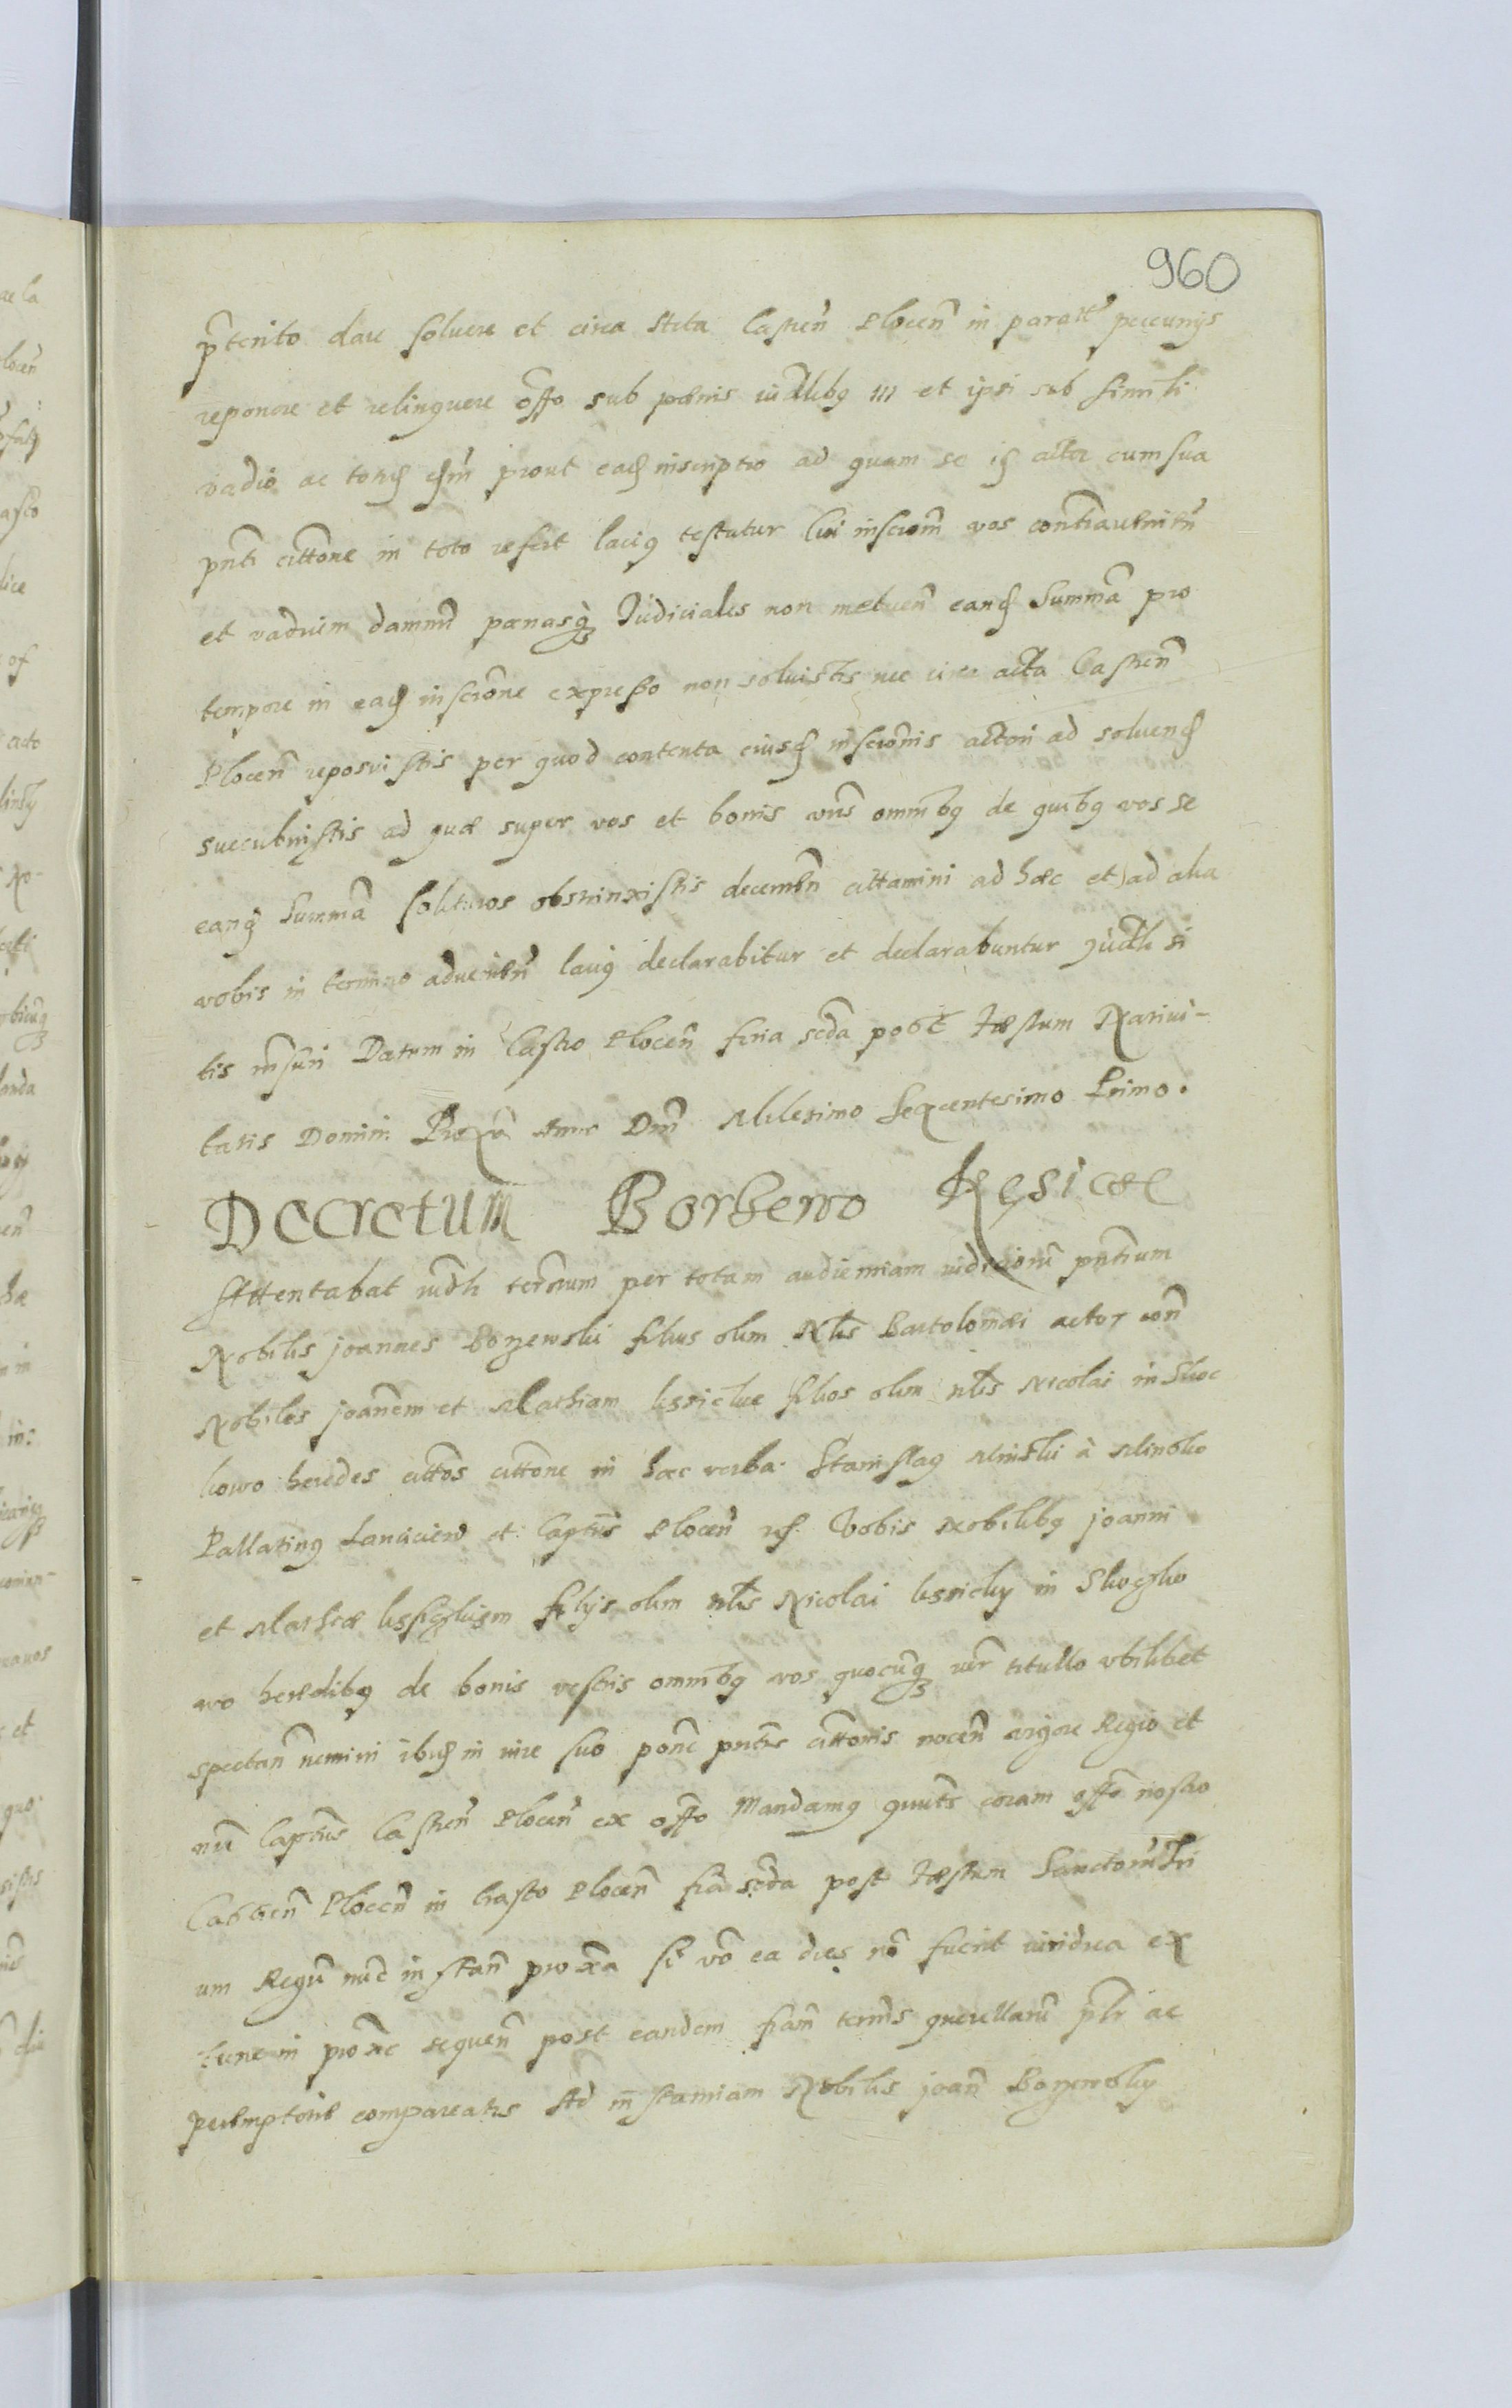 960
p̃terito dare soluere et circa Acta Castren̄ Plocen̄ in paratis peccunijs
reponere et relinquere offo sub pœnis iudlibꝫ 111 et ipsi sub simili
vadio ac prout eadꝫ inscriptio ad quam se is actor cum sua
pn̄ti cittōne in toto refert laciꝰ testatur Cui inscrōni vos contrauenien̄
et vadium damnū pœnasqꝫ Judiciales non metuen̄ eandꝫ Summā pro
tempore in eadꝫ inscrōne expresso non soluistis nec circa acta Castren̄
Plocen̄ reposuistis per quod contenta eiusdꝫ inscrōnis actori ad soluendꝫ
succubuistis ad quæ super vos et bonis vr̄is omnibꝫ de quibꝫ vos se
eandꝫ Summā soluturos obstrinxistis decernen̄ cittamini ad hæc et ad alia
vobis in termino aduenien̄ laciꝰ declarabitur et declarabuntur Judlr si
tis r̄nsuri Datum in Castro Plocen̄ feria scda post Fæstum Natiui-
tatis Domini Proxa Anno Dni Milesimo Sexcentesimo Primo.
Decretum Borzewo Kęsicæ
Attentabat iudlr terminum per totam audientiam iudiciorū pn̄tium
Nobilis joannes Borzewski filius olim Nlis Bartolomæi actor con̄
Nobiles joannem et Mathiam kęsickie filios olim nlis Nicolai in Skoc
kowo heredes cittos cittone in hæc verba. Stanislaꝰ Minski à Minsko
Pallatinꝰ Lancicien̄ et Capneus Plocen̄ Vobis Nobilibꝫ joanni
et Mathiæ filijs olim nlis Nicolai kęsicky in Skoczko
wo heredibꝫ de bonis vestris omnibꝫ vos quocūqꝫ titullo vbilibet
spectan̄ nemini ibidꝫ in iure suo pn̄tis cittōnis nocen̄ vigore Regio et
Castren̄ Plocen̄ ex offo Mandamꝰ coram offo nostro
Castren̄ Plocen̄ in Castro Plocen̄ fria scda post Fæstum Sanctorū Tri
um Regū nūc instan̄ proxa si vō ea dies nō fuerit iuridica ex
tunc in proxe sequen̄ post eandem fiam termīs querellarū plr ac
peremptorie compareatis Ad instantiam Nobilis joan̄ Borzewsky